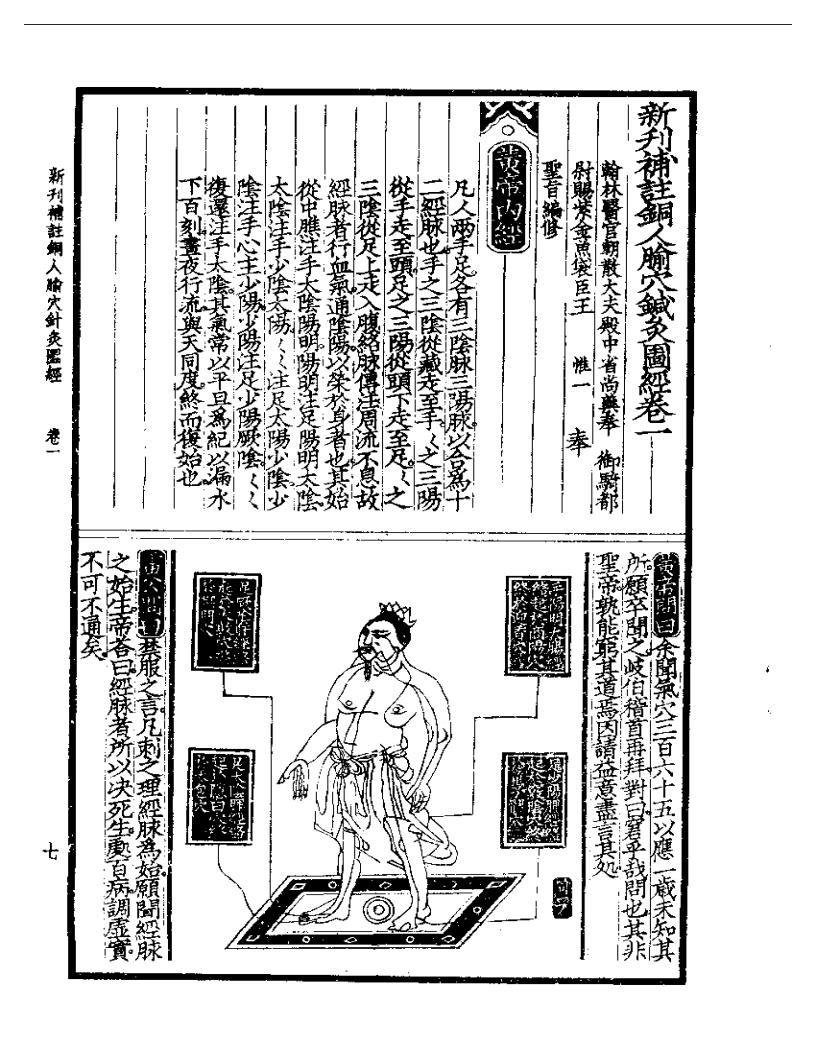 新刊補註銅人腧穴鍼灸圖經卷一
翰林醫官朝散大夫殿中省尚藥奉 御騎都
尉賜紫金魚袋臣王 惟一 奉
聖旨編修
黃帝內經
凡人兩手足各有三陰脉三陽脉以合爲十
二經脉也手之三陰從藏走至手〻之三陽
從手走至頭足之三陽從頭下走至足〻之
三陰從足上走入腹絡脉傳注周流不息故
經脉者行血氣通陰陽以榮於身者也其始
從中膲注手太陰陽明陽明注足陽明太陰
太陰注手少陰太陽〻〻注足太陽少陰少
陰注手心主少陽少陽注足少陽厥陰〻〻
復還注手太陰其氣常以平旦爲紀以漏水
下百刻晝夜行流與天同度終而復始也
黃帝問曰余聞氣穴三百六十五以應一歲未知其
所願卒聞之岐伯稽首再拜對曰窘乎哉問也其非
聖帝孰能窮其道焉因請益意盡言其処
雷公問曰禁服之言凡刺之理經脉為始願聞經脉
之始生帝荅曰經脉者所以决死生處百病調虛實
不可不通矣
新刊補註銅人腧穴針灸圖經 卷一
七